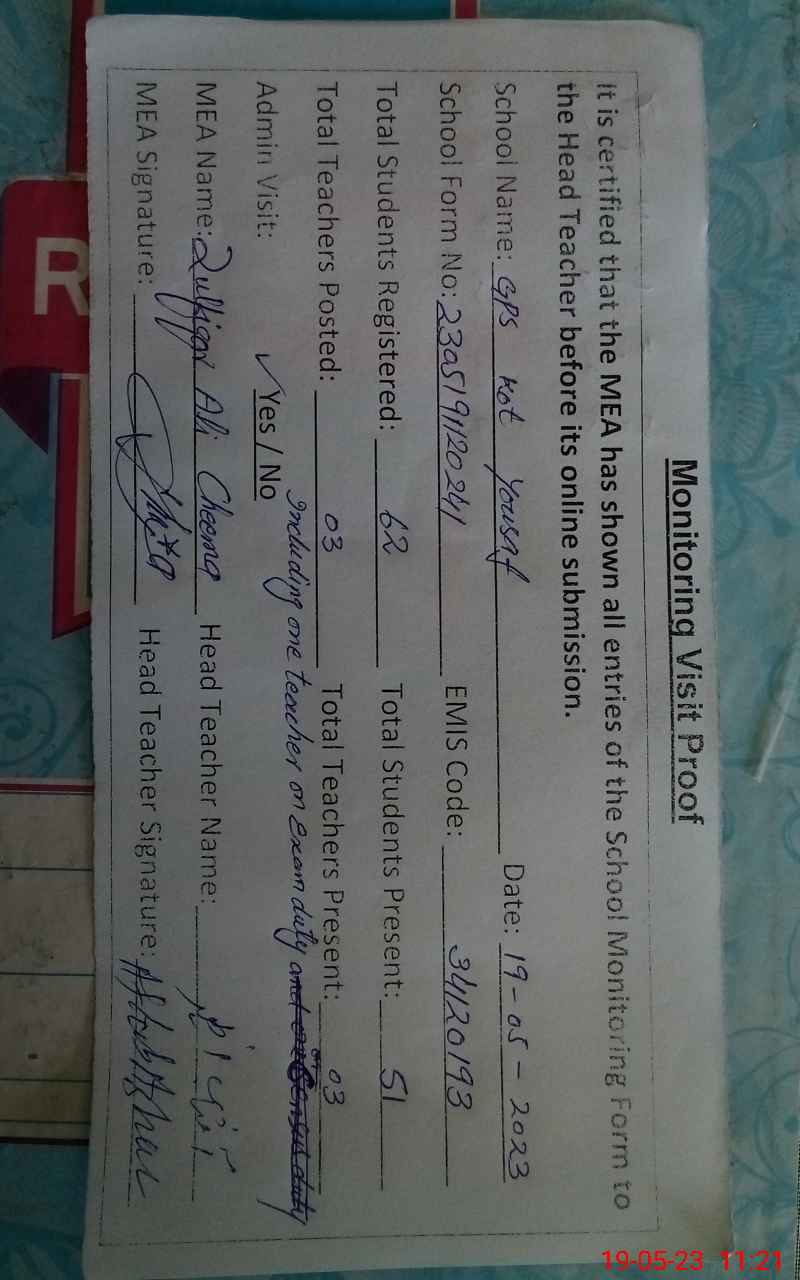 Monitoring Visit Proof
It is certified that the MEA has shown all entries of the School Monitoring Form to
the Head Teacher before its online submission.
School Name: GPS Kot Yousaf Date: 19-05-2023
School Form No: 2305191120241 EMIS Code: 34120193
Total Students Registered: 62 Total Students Present: 51
Total Teachers Posted: 03 Total Teachers Present: 03
Including one teacher on Exam duty and on Census duty
Admin Visit: ✓Yes / No
MEA Name: Zulfiqar Ali Cheema Head Teacher Name:
MEA Signature: Head Teacher Signature:
R
19-05-23 11:21